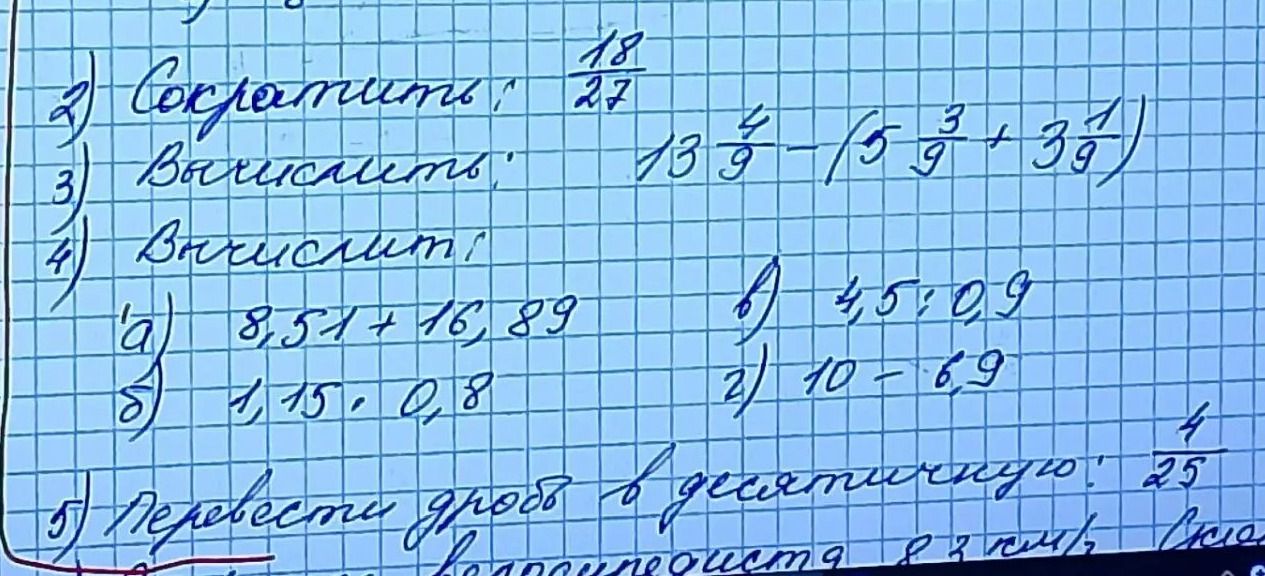 2) Сократить: 18/27
3) Вычислить: 13 4/9 - (5 3/9 + 3 1/9)
4) Вычислит:
а) 8,51 + 16,89 в) 4,5 : 0,9
б) 1,15 · 0,8 г) 10 - 6,9
5) Перевести дробь в десятичную: 4/25
велосипедиста 8 2 км/ч